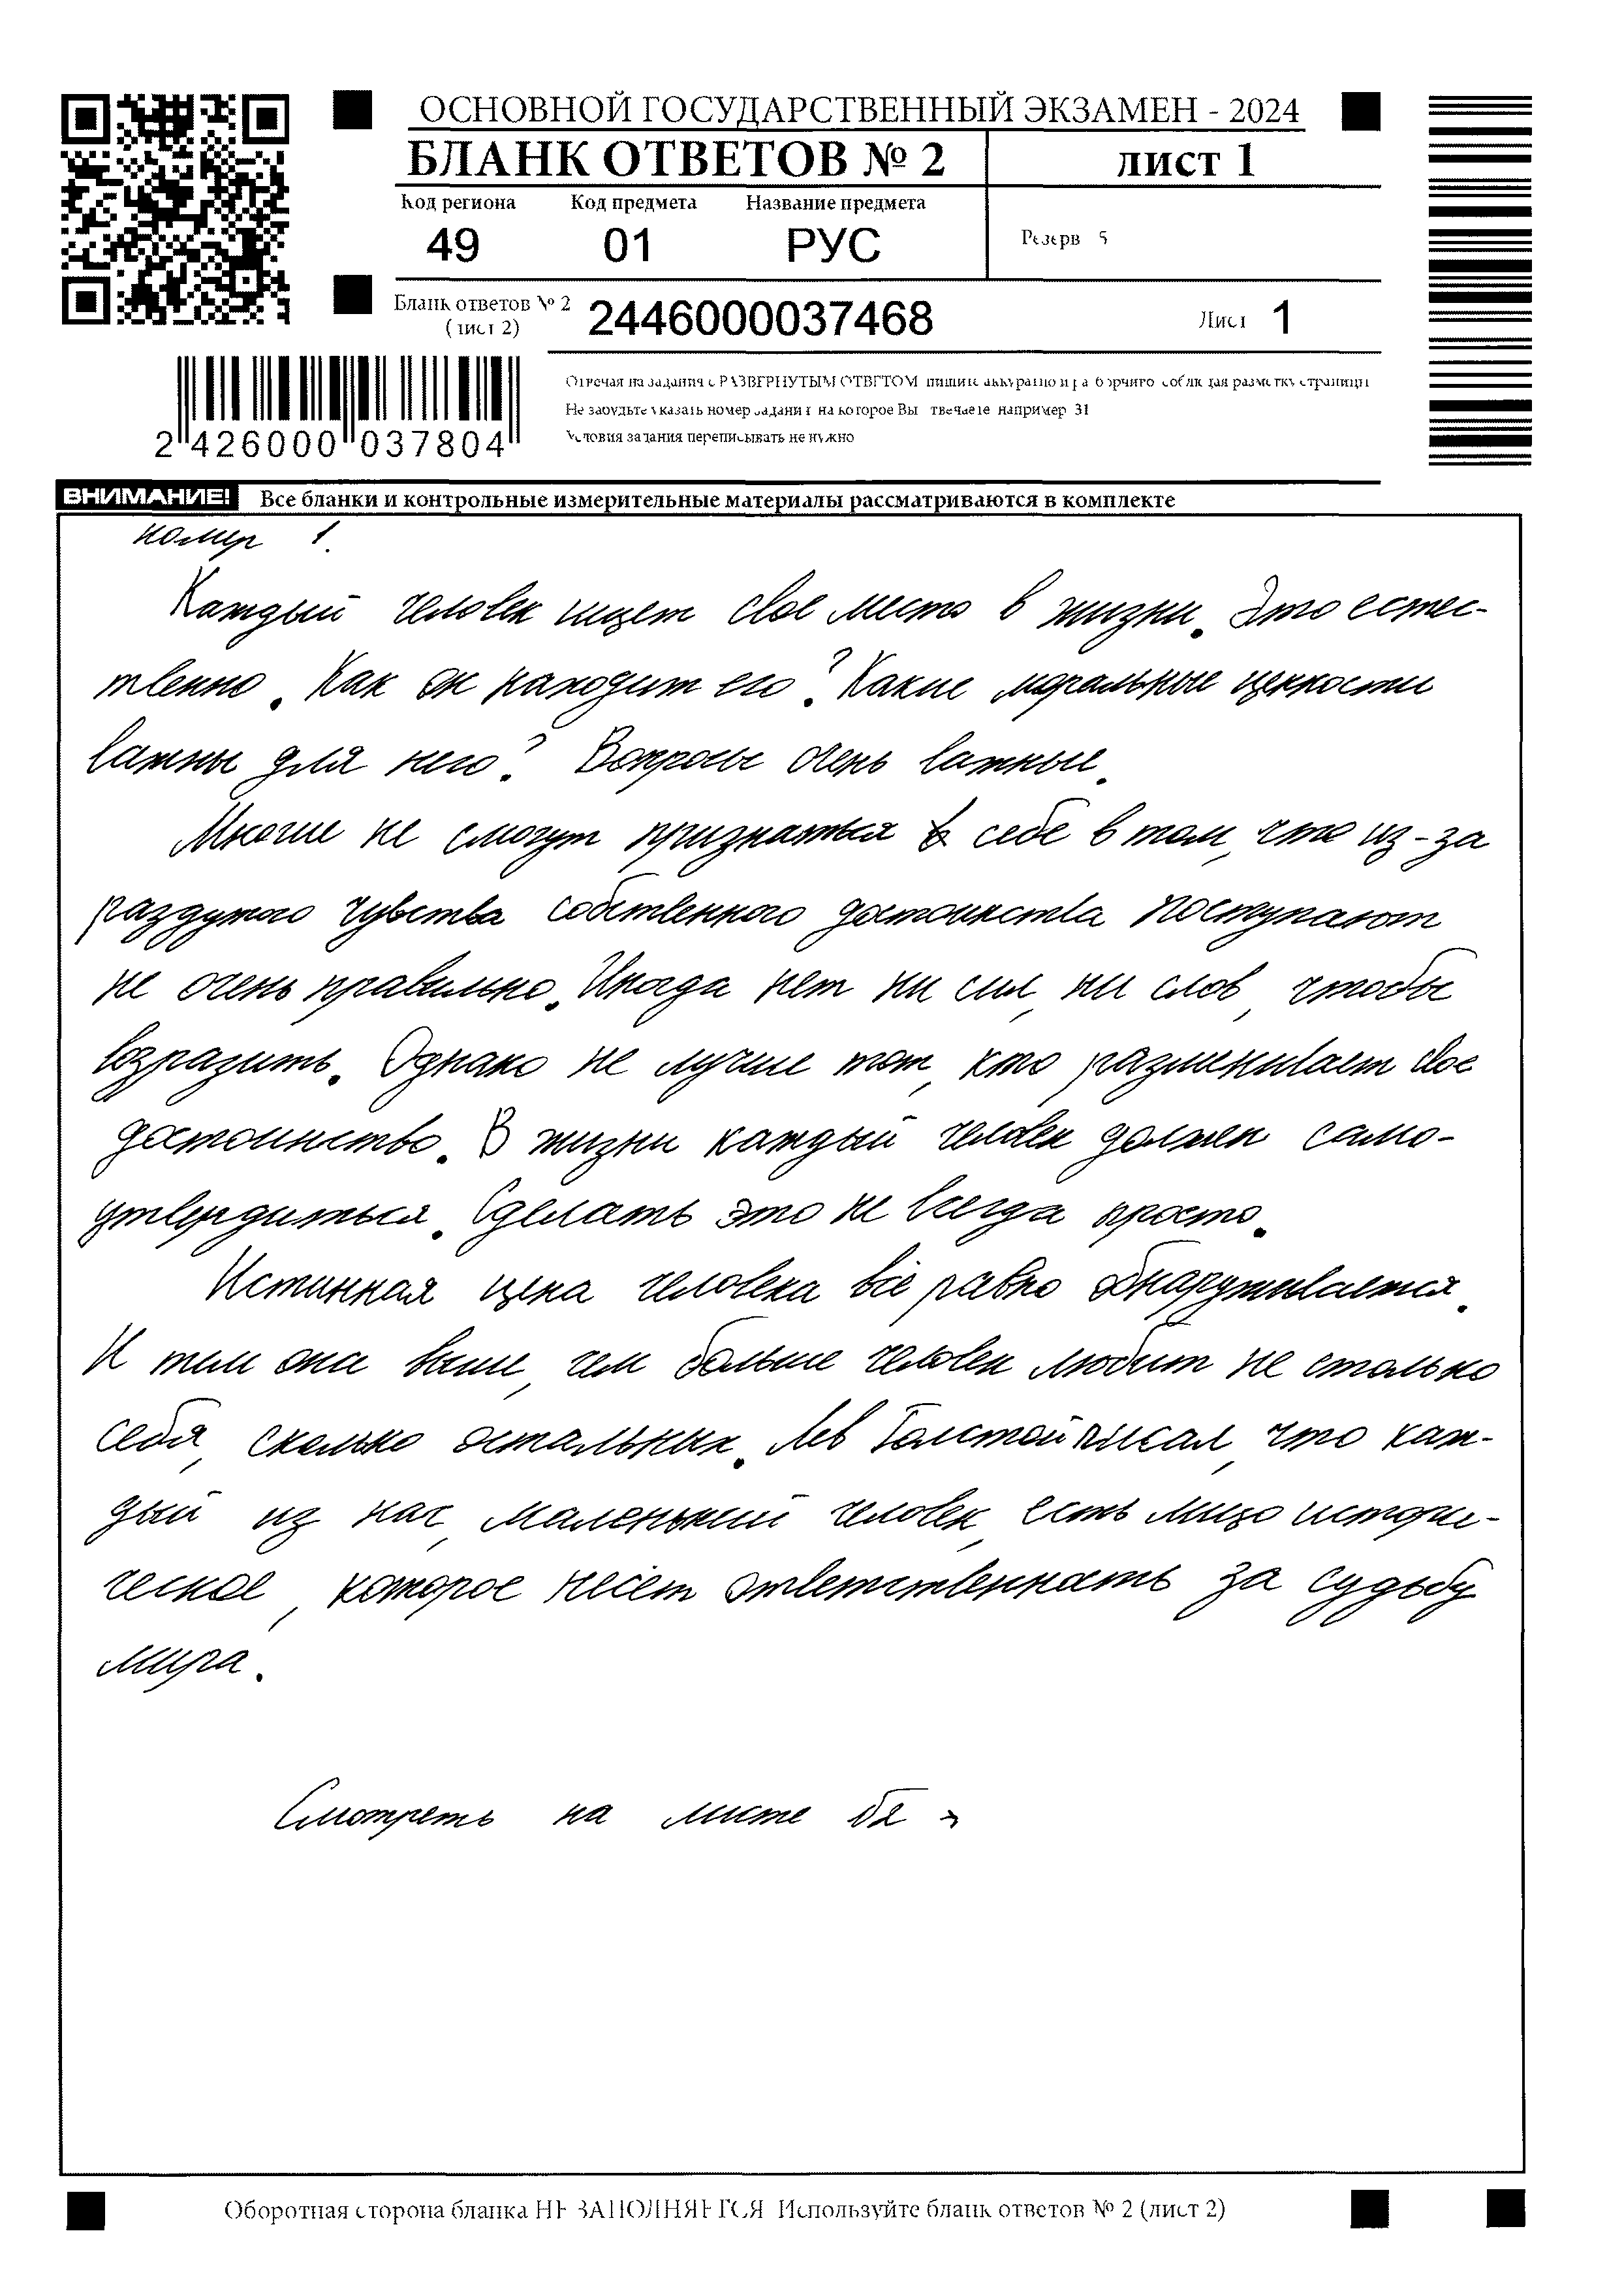 ОСНОВНОЙ ГОСУДАРСТВЕННЫЙ ЭКЗАМЕН - 2024
БЛАНК ОТВЕТОВ № 2
лист 1
Код региона Код предмета Название предмета
49 01 РУС
Резерв 5
Бланк ответов № 2
(лист 2)
2446000037468
Лист 1
2 426000 037804
Отвечая на задания с РАЗВЕРНУТЫМ ОТВЕТОМ пишите аккуратно и разборчиво соблюдая разметку страницы
Не забудьте указать номер задания на которое Вы отвечаете например 31
Условия задания переписывать не нужно
ВНИМАНИЕ! Все бланки и контрольные измерительные материалы рассматриваются в комплекте
номер 1.
Каждый человек ищет свое место в жизни. Это естес-
твенно. Как он находит его? Какие моральные ценности
важны для него? Вопросы очень важные.
Многие не смогут признаться себе в том, что из-за
раздутого чувства собственного достоинства поступают
не очень правильно. Иногда нет ни сил, ни слов, чтобы
возразить. Однако не лучше тот, кто разменивает свое
достоинство. В жизни каждый человек должен само-
утвердиться. Сделать это не всегда просто.
Истинная цена человека всё равно обнаруживается.
И тем она выше, чем больше человек любит не столько
себя, сколько остальных. Лев Толстой писал, что каж-
дый из нас, маленький человек, есть лицо истори-
ческое, которое несёт ответственность за судьбу
мира.
Смотреть на листе
Оборотная сторона бланка НЕ ЗАПОЛНЯЕТСЯ Используйте бланк ответов № 2 (лист 2)